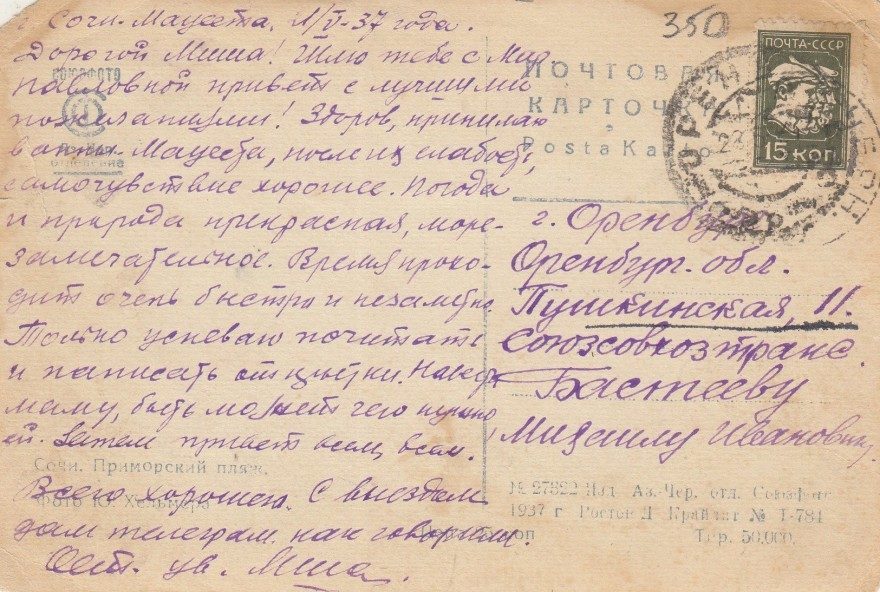 г. Сочи-Мацеста. 1/V-37 года.
Дорогой Миша! Шлю тебе с
Павловной привет с лучшими
пожеланиями! Здоров, принимаю
ванны Мацеста, после их слабость,
самочувствие хорошее. Погода
и природа прекрасная, море-
замечательное. Время прохо-
дит очень быстро и незаметно.
Только успеваю почитать
и написать открытки.
маму, быть может чего нужно
ей. Затем привет всем, всем.
Всего хорошего. С выездом
дам телеграм. как говорили.
Миша.
СОЮЗФОТО
Сочи. Приморский пляж.
Фото Ю.
350
ПОЧТА-СССР
15 КОП
ПОЧТОВАЯ
КАРТОЧ
Posta Ka
г. Оренбург
Оренбург. обл.
Пушкинская, 11.
Союзсовхозтранс.
Бастееву
Михаилу Ивановичу
№ 27822 Изд. Аз.-Чер. отд. Союзфото
1937 г Ростов Д Крайлит № 1-781
коп Тир. 50.000.